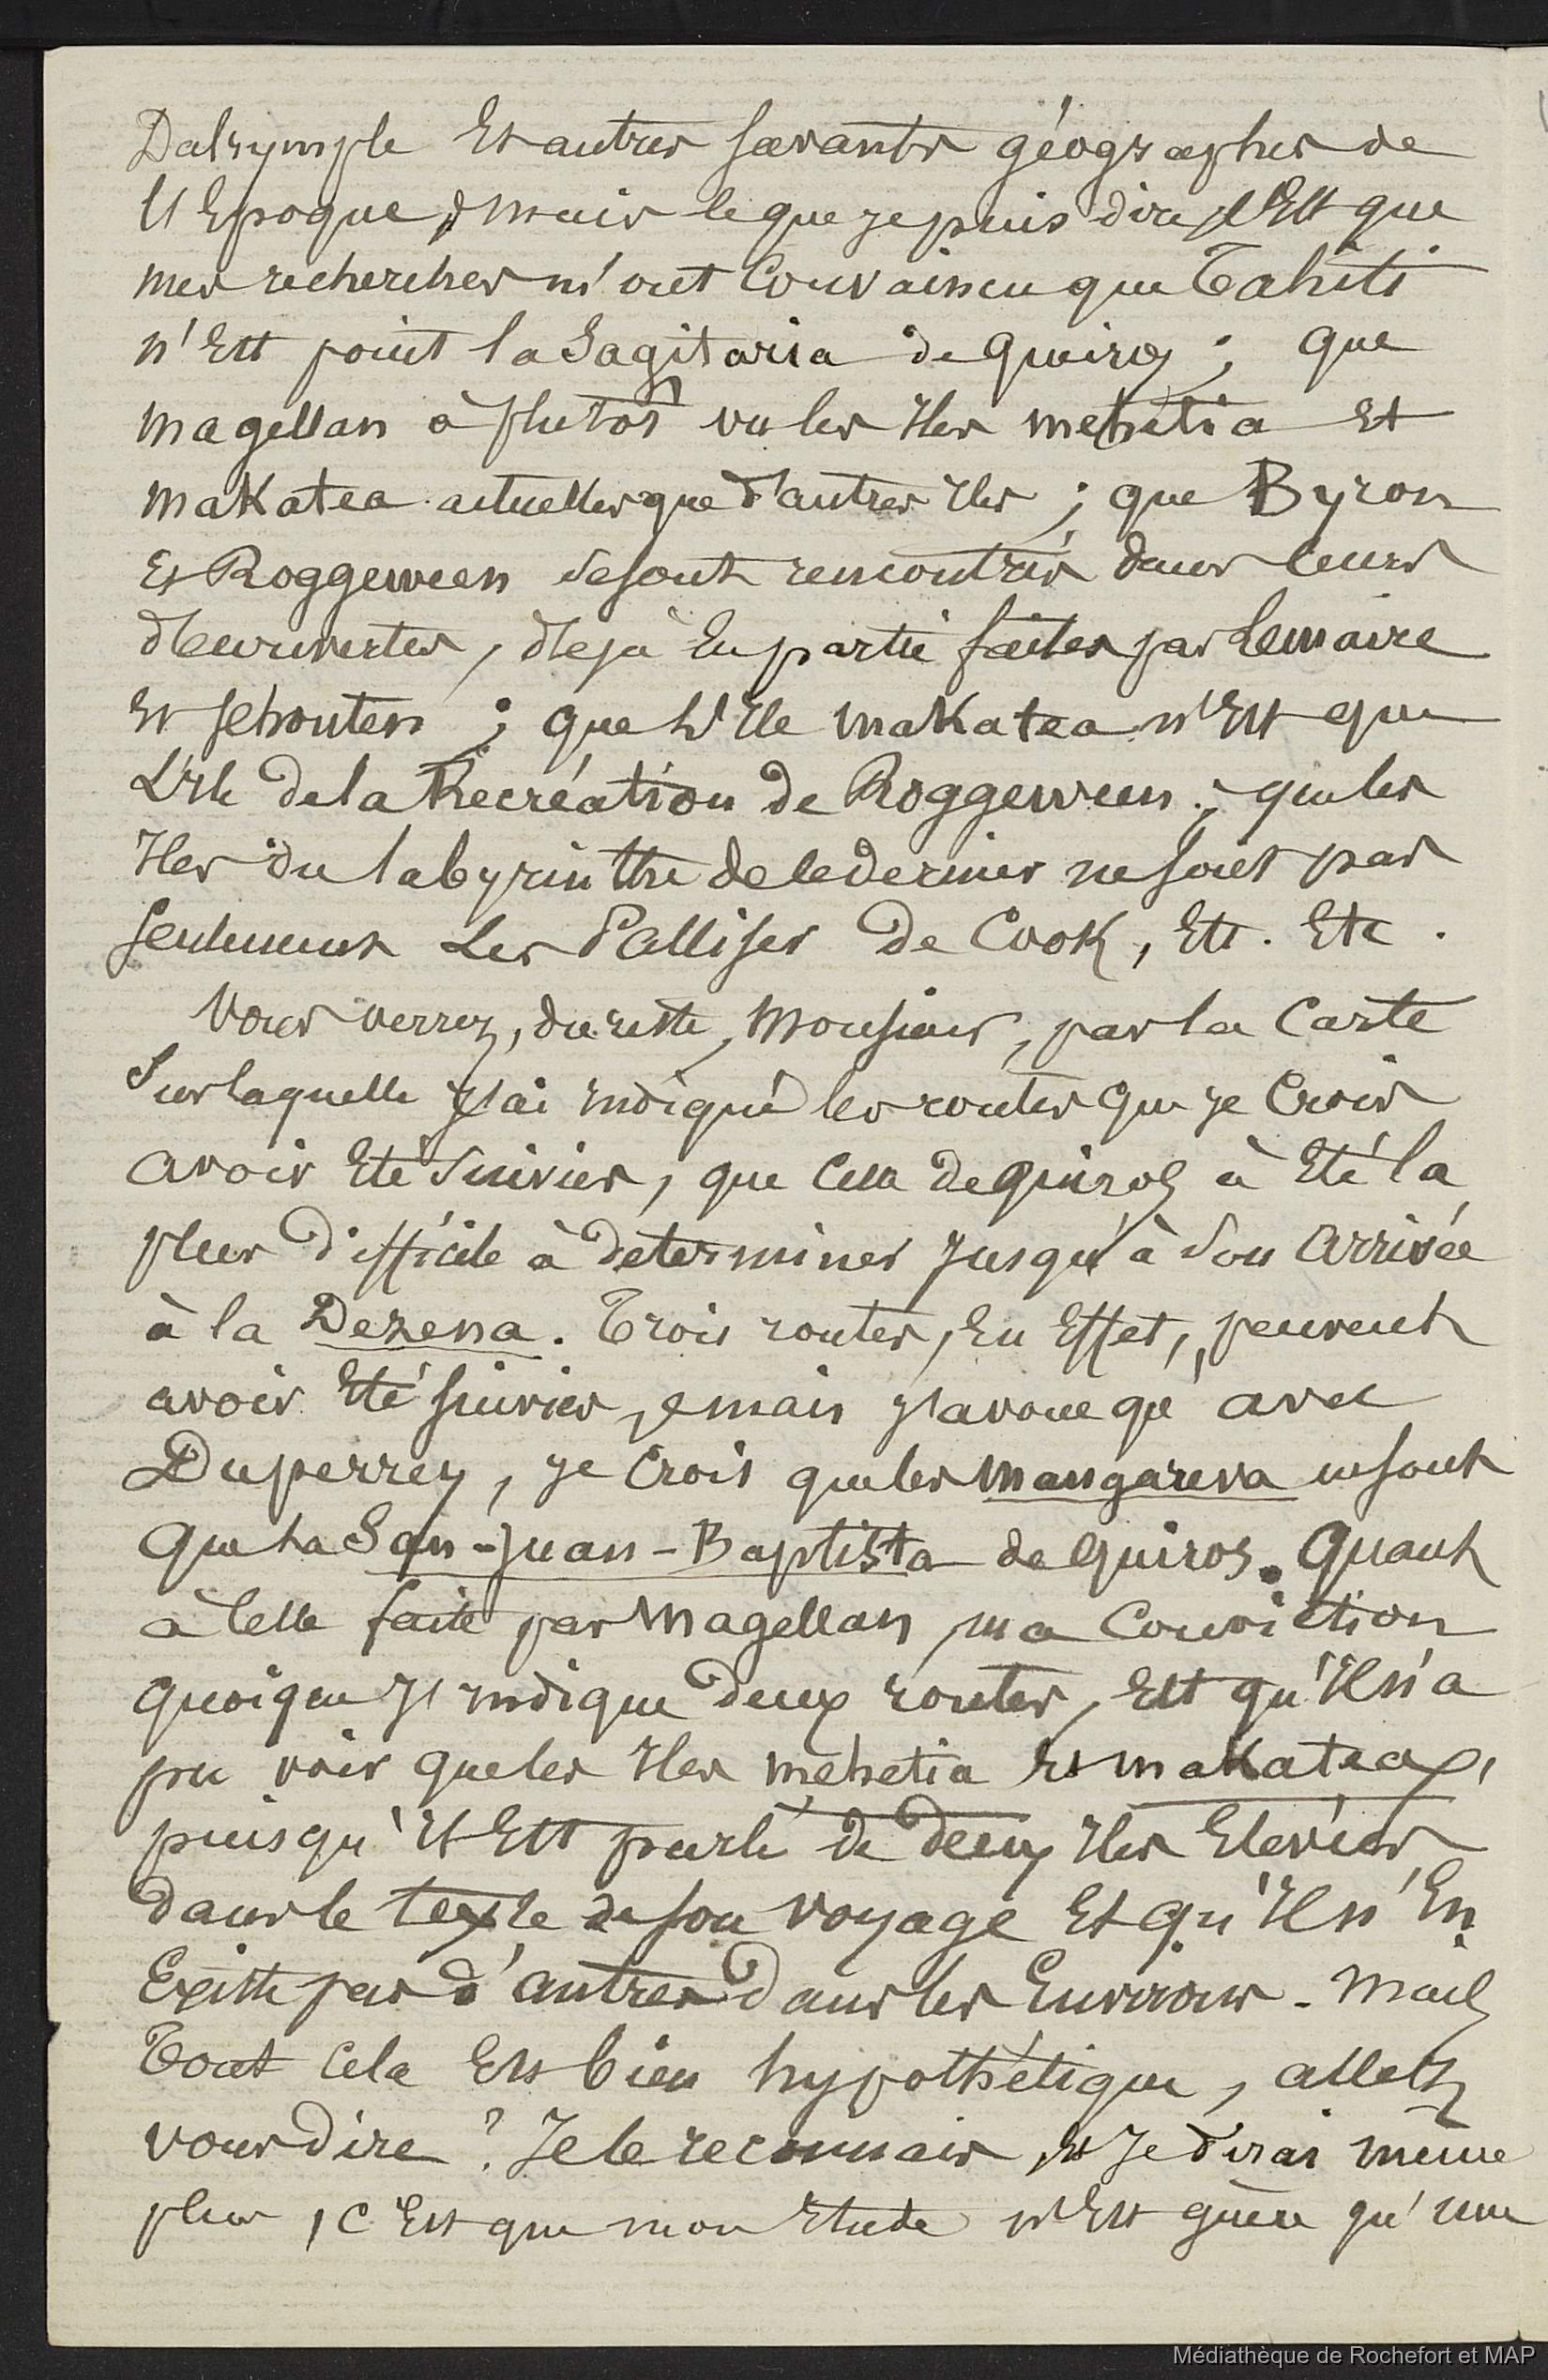 Dalrymple Et autres savants géographes de
l'Epoque, mais ce que je puis dire, c'Est que
mes recherches m'ont Convaincu que Tahiti
n'Est point la Sagitaria de Quiros ; que
magellan à plutôt vu les Iles mehetia Et
makatea actuelles que d'autres Iles ; que Byron
Et Roggeween se sont rencontrés dans leurs
découvertes, déjà En partie faites par Lemaire
Et Schouten ; que l'Ile makatea n'Est que
L'Ile de la Recréation de Roggeween ; que les
Iles du labyrinthe de ce dernier ne sont pas
seulement Les Palliser de Cook, Etc. Etc.
Vous verrez, du reste, Monsieur, par la Carte
Sur laquelle j'ai indiqué les routes que je Crois
avoir Eté Suivies, que Celle de Quiros à Eté la
plus difficile à determiner jusqu'à Son Arrivée
à la Dezena. Trois routes, En Effet, peuvent
avoir Eté suivies, mais j'avoue qu'avec
Duperrey, je Crois que les Mangareva ne sont
que La San-Juan-Baptista de Quiros. Quant
à Celle faite par Magellan, ma Conviction
quoique j'indique deux routes, Est qu'Il n'a
pu voir que les Iles mehetia Et makatea,
puisqu'Il Est parlé de deux Iles Elevées
dans le texte de son voyage Et qu'Il n'En
Existe pas d'autres dans les Environs. Mais
Tout Cela Est bien hypothétique, allez
vous dire ? Je le reconnais, Et Je dirai même
plus, c'Est que mon Etude n'Est guère qu'une
Médiathèque de Rochefort et MAP